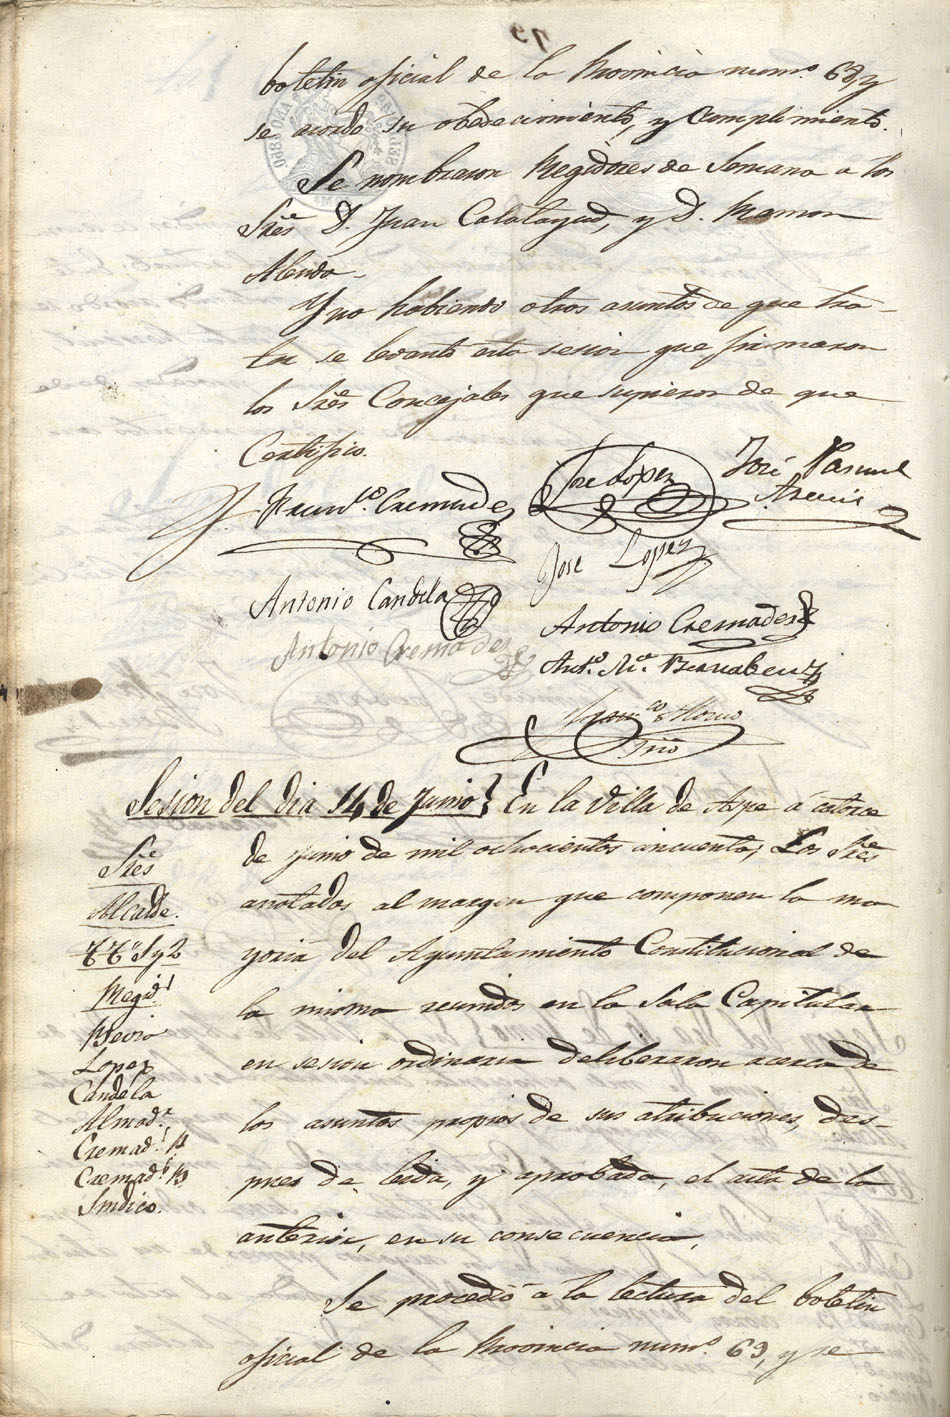 79
boletin oficial de la Provincia num.o 68, y
se acordó su obedecimiento, y Cumplimiento.
Se nombraron Regidores de Semana a los
Sres D. Juan Calatayud, y D. Ramon
Alenda.
Y no habiendo otros asuntos de que tra-
tar se levantó esta sesion que firmaron
los Sres Concejales que supieron de que
Certifico.
Fran.co Cremades
Jose Lopez
José Pascual
Antonio Candela
Jose Lopez
Antonio Cremades
Antonio Cremades
Ant.o M.a Bernabeu
Srio
Sesion del dia 14 de Junio} En la Villa de Aspe á catorce
de Junio de mil ochocientos cincuenta; Los Sres
anotados al margen que componen la ma
yoria del Ayuntamiento Constitucional de
la misma reunidos en la Sala Capitular
en sesion ordinaria deliberaron acerca de
los asuntos propios de sus atribuciones, des-
pues de leida, y aprobada, el acta de la
anterior, en su consecuencia,
Se procedió á la lectura del boletin
oficial de la Provincia num.o 69, y se
Sres
Alcalde.
TT.s 1 y 2
Regid.s
Lopez
Candela
Almod.r
Cremad.s 14
Cremad.s 13
Sindico.